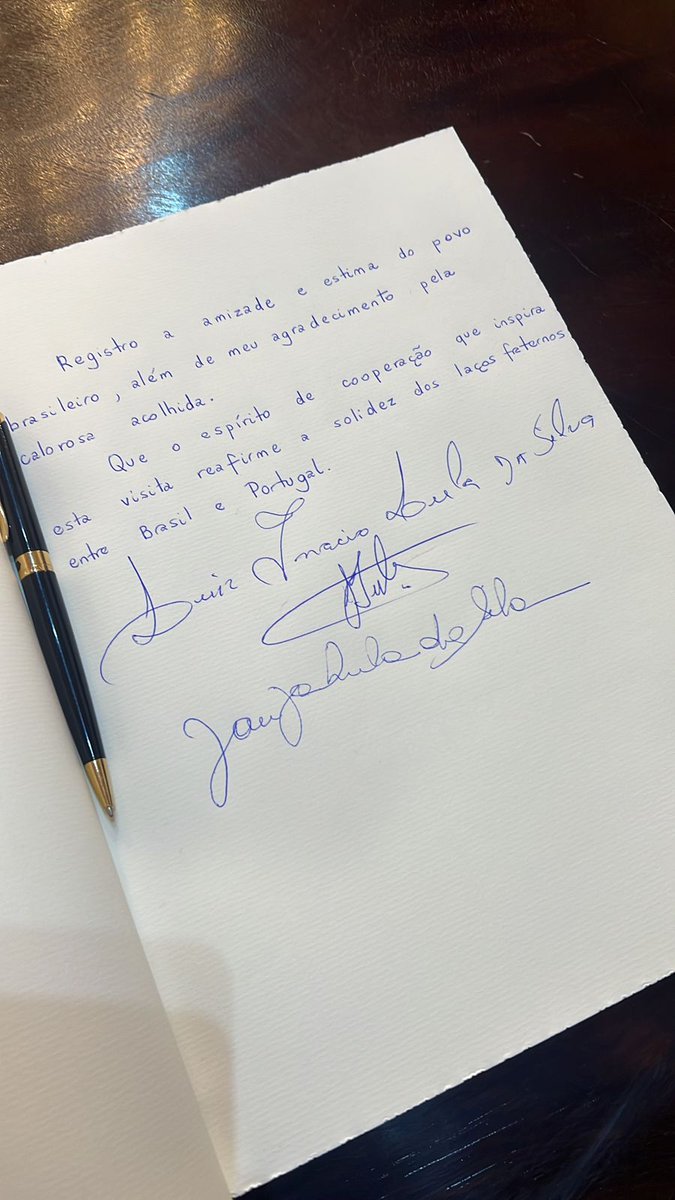 Registro a amizade e estima do povo
brasileiro, além de meu agradecimento pela
calorosa acolhida.
Que o espírito de cooperação que inspira
esta visita reafirme a solidez dos laços faternos
entre Brasil e Portugal.
Luiz Inacio Lula DA Silva
Lula
Janja Lula da Silva